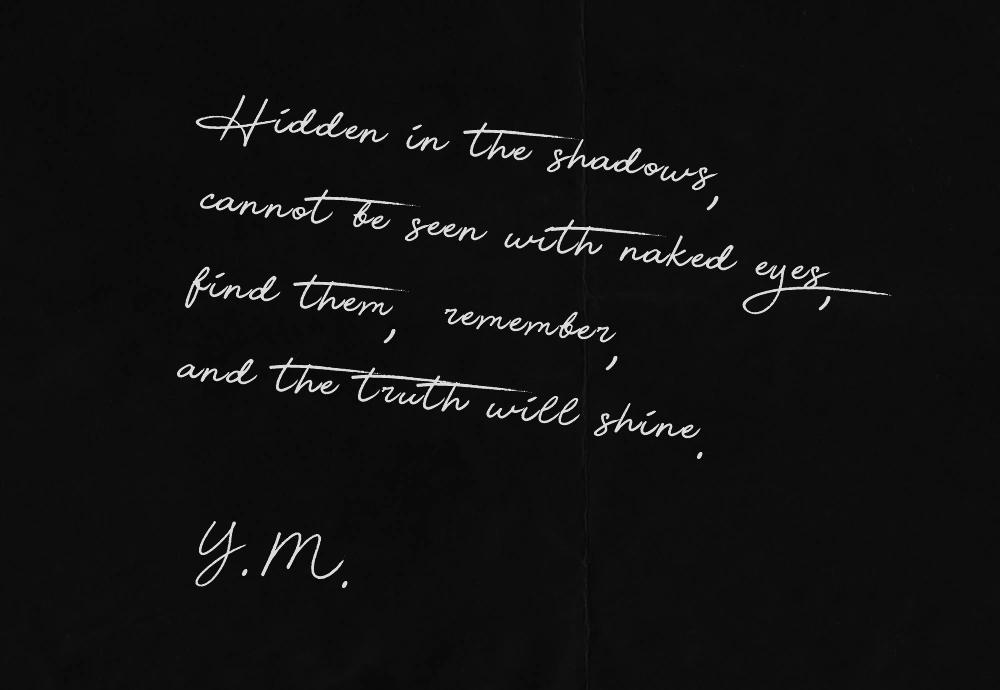 Hidden in the shadows,
cannot be seen with naked eyes,
find them, remember,
and the truth will shine.
Y.M.